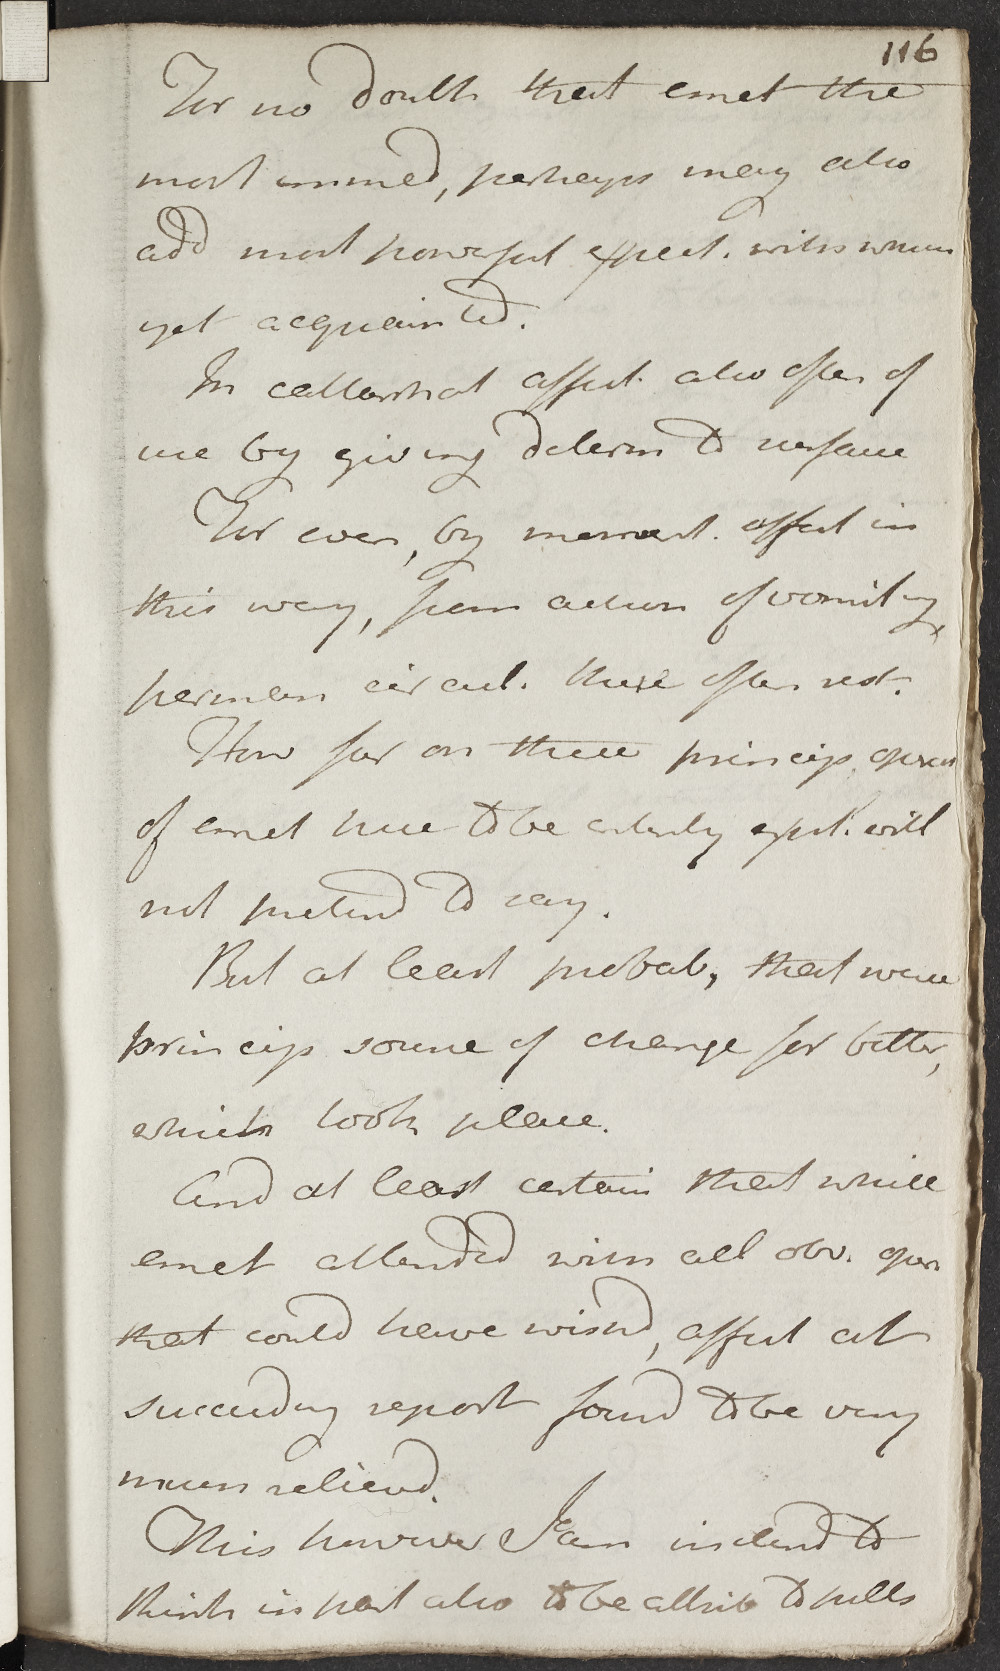 116
For no doubt that emet the
most immed, perhaps may also
add most powerful expect. with whom
yet acquainted.
In catarrhal affect. also often of
use by giving determ to surface
For even, by moment. effect in
this way, from action of vomiting,
permanen circul. there often rest.
How far on these princip. operat
of emet here to be entirely expl. will
not pretend to say.
But at least probab, that were
princip source of change for better,
which took place.
And at least certain that while
emet attended with all obv. oper
that could have wishd, affect at
succeeding report found to be very
much relievd.
This however I am inclend to
think in part also to be attrib to pills